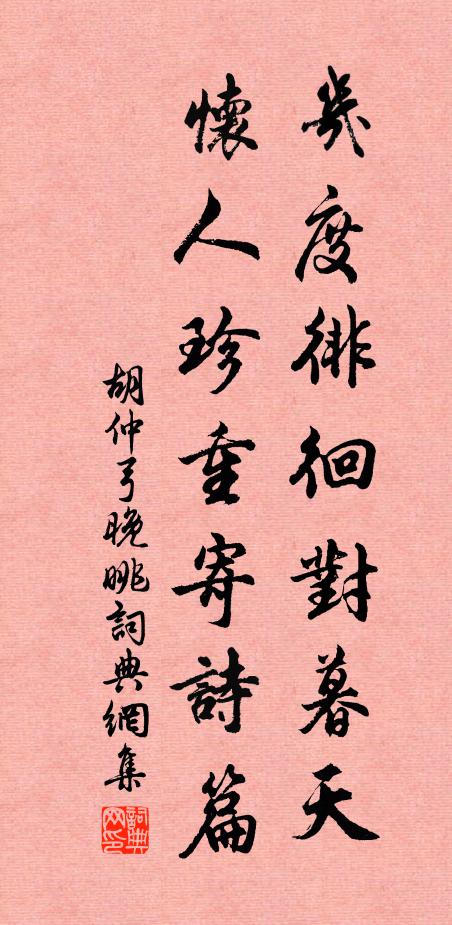 幾度徘徊對暮天
懷人珍重寄詩篇
胡仲弓晚眺詞典網集
詞典
网印